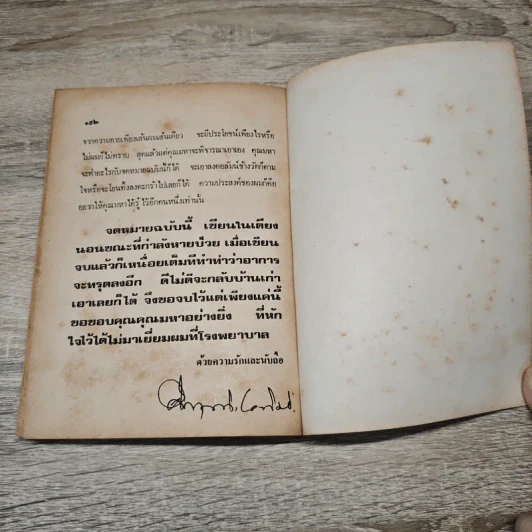 ๑๕๒
จากความตายเพียงเส้นผมเส้นเดียว จะมีประโยชน์เพียงไรหรือ
ไม่ผมก็ไม่ทราบ สุดแล้วแต่คุณมหาจะพิจารณาเอาเอง คุณมหา
จะทำอะไรกับจดหมายฉบับนี้ก็ได้ จะเอาลงคอลัมน์ข้างวัดก็ตาม
ใจหรือจะโยนทิ้งลงตะกร้าไปเลยก็ได้ ความประสงค์ของผมก็คือ
อยากให้คุณมหาได้รู้ ไว้อีกคนหนึ่งเท่านั้น
จดหมายฉบับนี้ เขียนในเตียง
นอนขณะที่กำลังหายป่วย เมื่อเขียน
จบแล้วก็เหนื่อยเต็มทีทำท่าว่าอาการ
จะทรุดลงอีก ดีไม่ดีจะกลับบ้านเก่า
เอาเลยก็ได้ จึงขอจบไว้แต่เพียงแค่นี้
ขอขอบคุณคุณมหาอย่างยิ่ง ที่หัก
ใจไว้ได้ไม่มาเยี่ยมผมที่โรงพยาบาล
ด้วยความรักและนับถือ